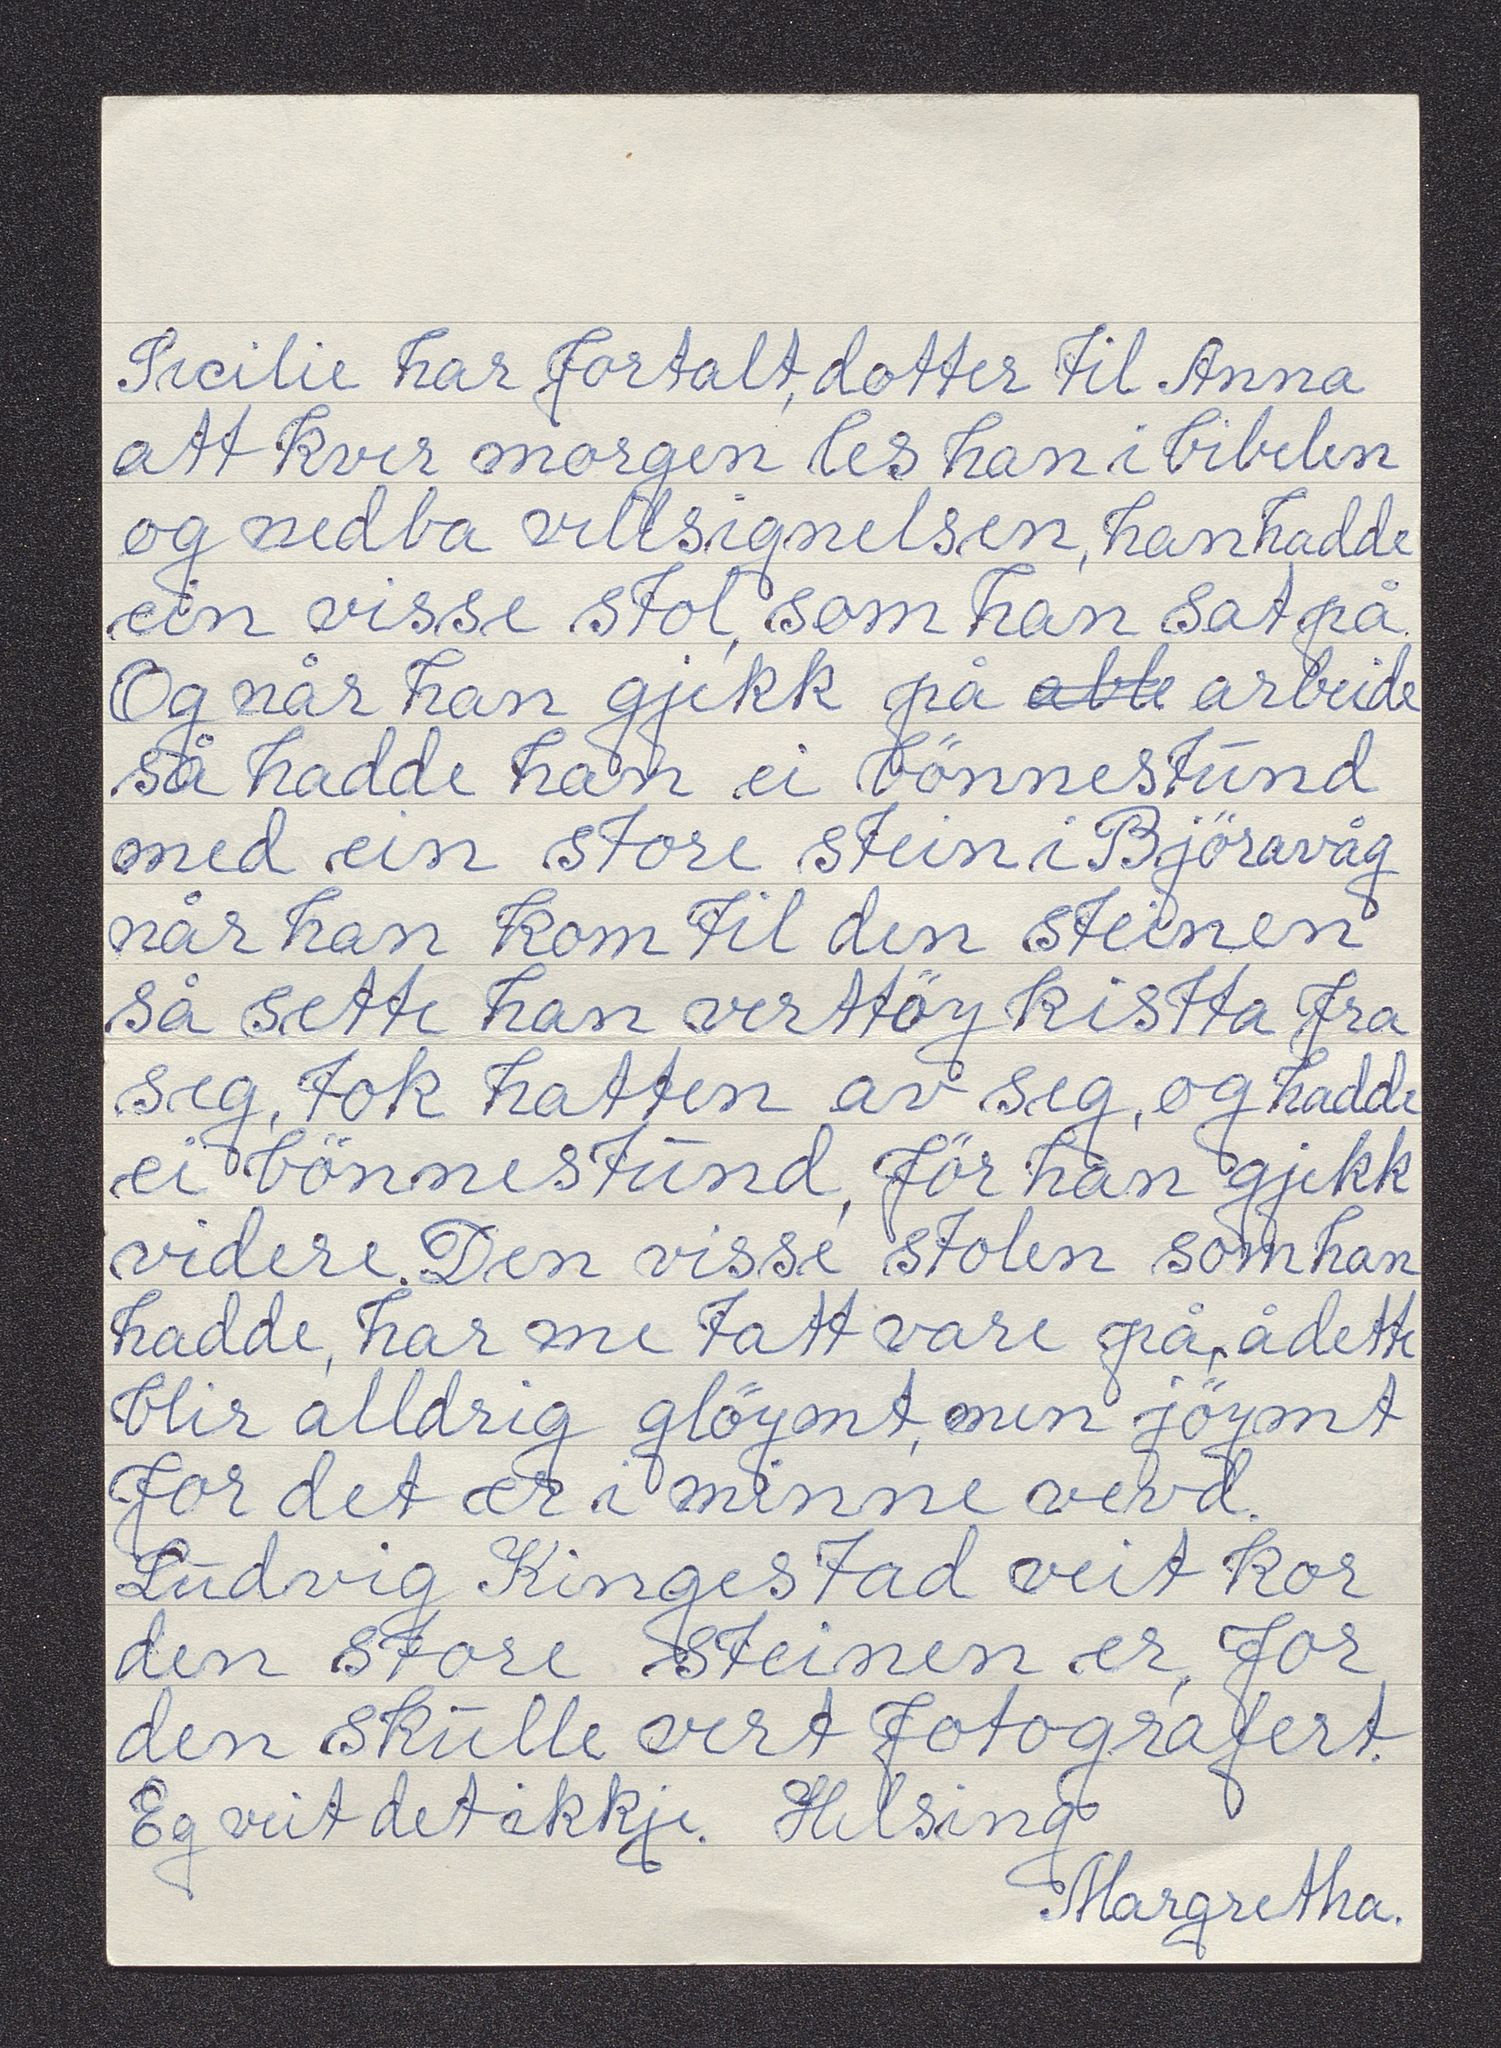 Sicilie har fortalt, dotter til Anna
att kver morgen les han i bibelen
og nedba vellsignelsen, han hadde
ein visse stol, som han sat på.
Og når han gjekk på arbeide
så hadde han ei bönnestund
med ein store stein i Björavåg
når han kom til den steinen
så sette han verttöy kistta fra
seg, tok hatten av seg, og hadde
ei bönnestund, för han gjekk
videre. Den visse stolen som han
hadde, har me tatt vare på, å dette
blir alldrig glöymt, men jöymt
for det er i minne verd.
Ludvig Kingestad veit kor
den store steinen er, for
den skulle vert fotografert.
Eg veit det ikkje. Helsing
Margretha.